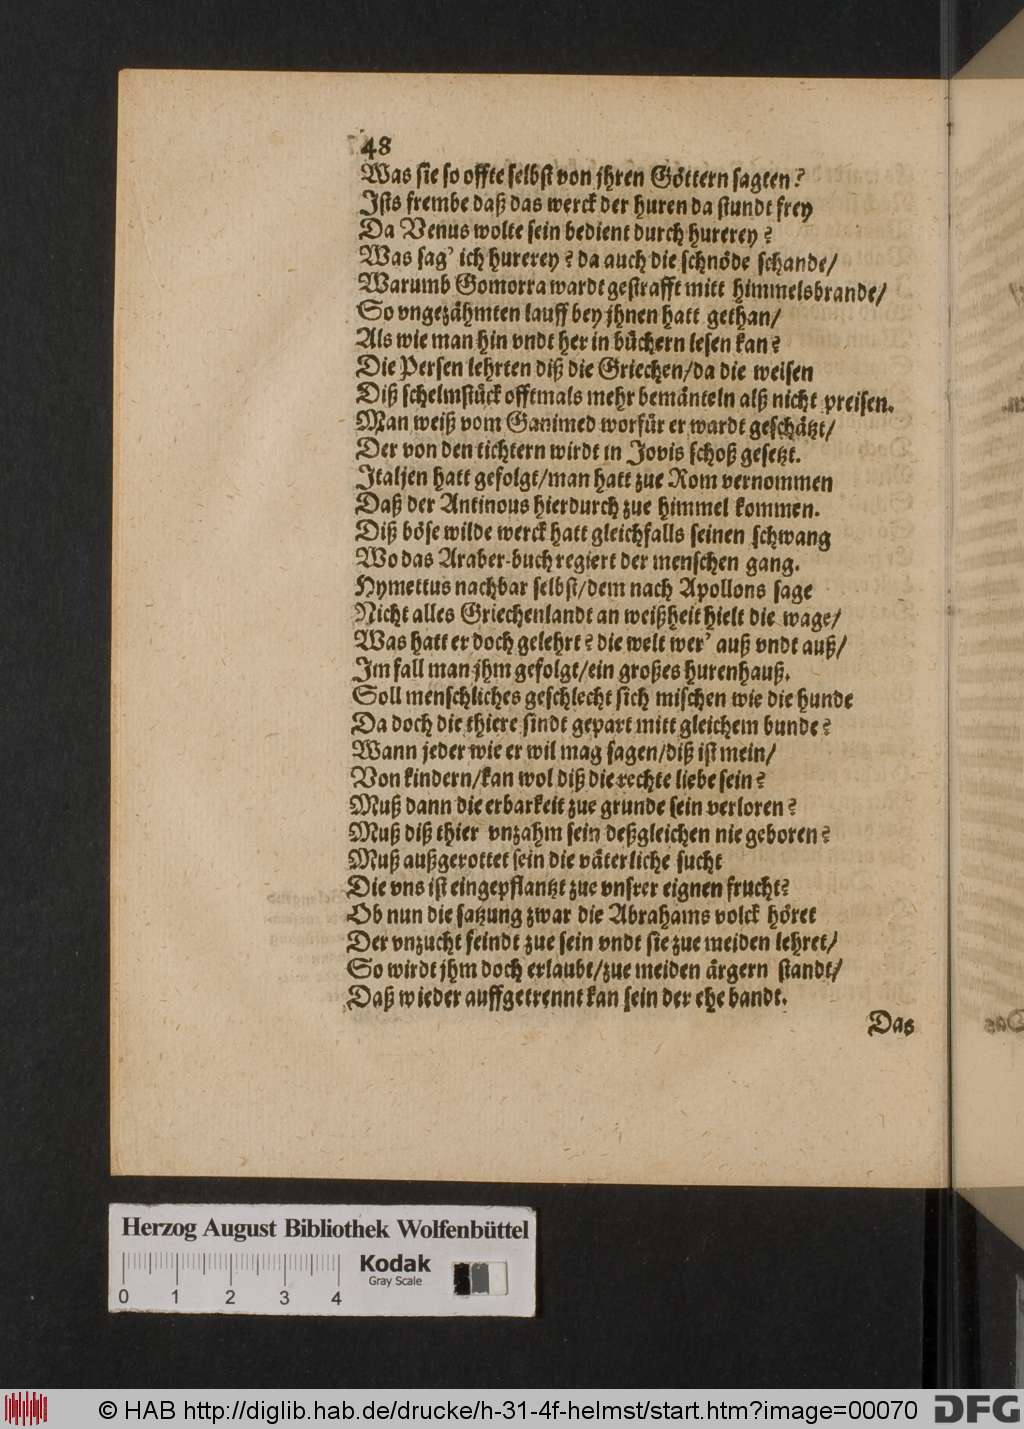 48
Was sie so offte selbst von jhren Göttern sagten?
Ists frembe daß das werck der huren da stundt frey
Da Venus wolte sein bedient durch hurerey?
Was sag' ich hurerey? da auch die schnöde schande/
Warumb Gomorra wardt gestrafft mitt himmelsbrande/
So vngezähmten lauff bey jhnen hatt gethan/
Als wie man hin vndt her in büchern lesen kan?
Die Persen lehrten diß die Griechen/da die weisen
Diß schelmstück offtmals mehr bemänteln alß nicht preisen.
Man weiß vom Ganimed worfür er wardt geschätzt/
Der von den tichtern wirdt in Jovis schoß gesetzt.
Italjen hatt gefolgt/man hatt zue Rom vernommen
Daß der Antinous hierdurch zue himmel kommen.
Diß böse wilde werck hatt gleichfalls seinen schwang
Wo das Araber-buch regiert der menschen gang.
Hymettus nachbar selbst/dem nach Apollons sage
Nicht alles Griechenlandt an weißheit hielt die wage/
Was hatt er doch gelehrt? die welt wer' auß vndt auß/
Im fall man jhm gefolgt/ein großes hurenhauß.
Soll menschliches geschlecht sich mischen wie die hunde
Da doch die thiere sindt gepart mitt gleichem bunde?
Wann jeder wie er wil mag sagen/diß ist mein/
Von kindern/kan wol diß die rechte liebe sein?
Muß dann die erbarkeit zue grunde sein verloren?
Muß diß thier vnzahm sein deßgleichen nie geboren?
Muß außgerottet sein die väterliche sucht
Die vns ist eingepflantzt zue vnsrer eignen frucht?
Ob nun die satzung zwar die Abrahams volck höret
Der vnzucht feindt zue sein vndt sie zue meiden lehret/
So wirdt jhm doch erlaubt/zue meiden ärgern standt/
Daß wieder auffgetrennt kan sein der ehe bandt.
Das
Herzog August Bibliothek Wolfenbüttel
Kodak
Gray Scale
0 1 2 3 4
© HAB http://diglib.hab.de/drucke/h-31-4f-helmst/start.htm?image=00070
DFG